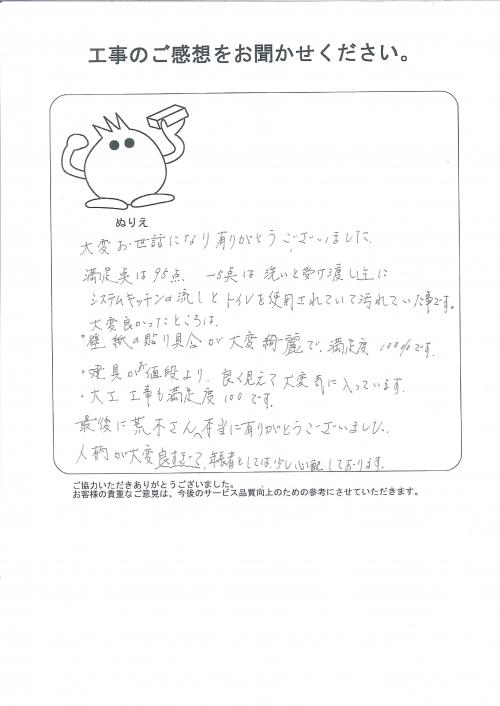 工事のご感想をお聞かせください。
ぬりえ
大変お世話になり有りがとうございました。
満足点は95点、-5点は洗いと受け渡し上に
システムキッチンの流しとトイレを使用されていて汚れていた事です。
大変良かったところは、
・壁紙の貼り具合が大変綺麗で、満足度100%です。
・建具がお値段より、良く見えて大変気に入っています。
・大工工事も満足度100です。
最後に荒木さん、本当に有りがとうございました。
人柄が大変良すぎて、年長者としては少し心配しております。
ご協力いただきありがとうございました。
お客様の貴重なご意見は、今後のサービス品質向上のための参考にさせていただきます。